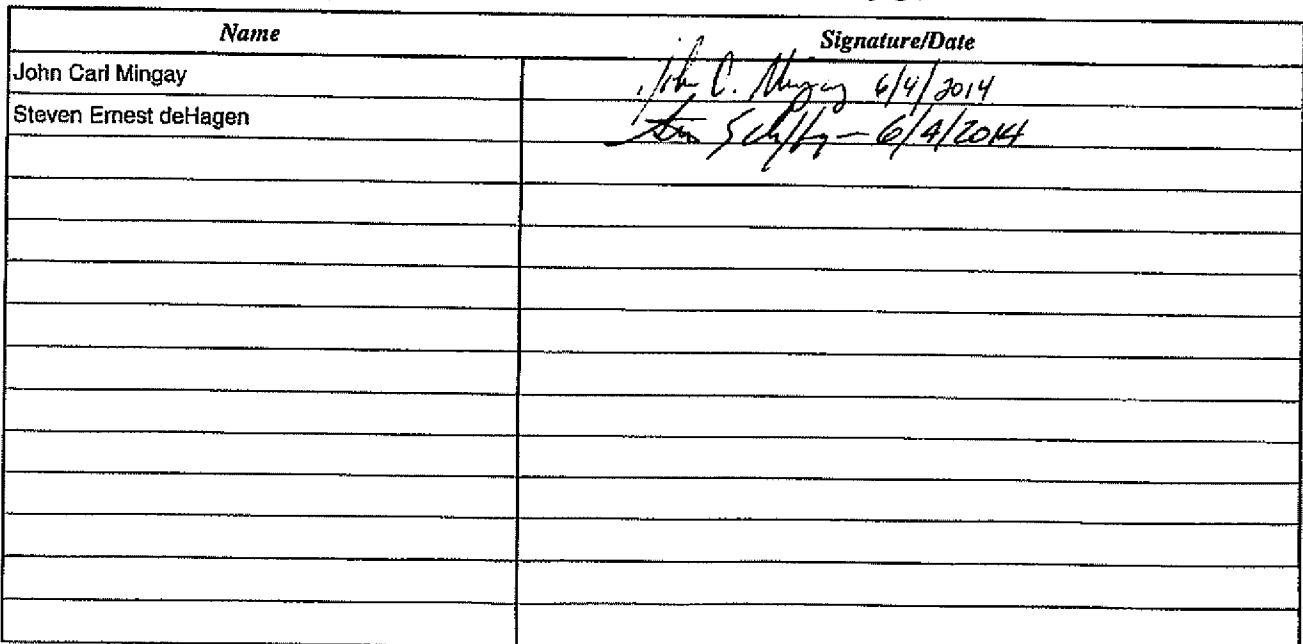 Name Signature/Date
John Carl Mingay John C. Mingay 6/4/2014
Steven Ernest deHagen 6/4/2014